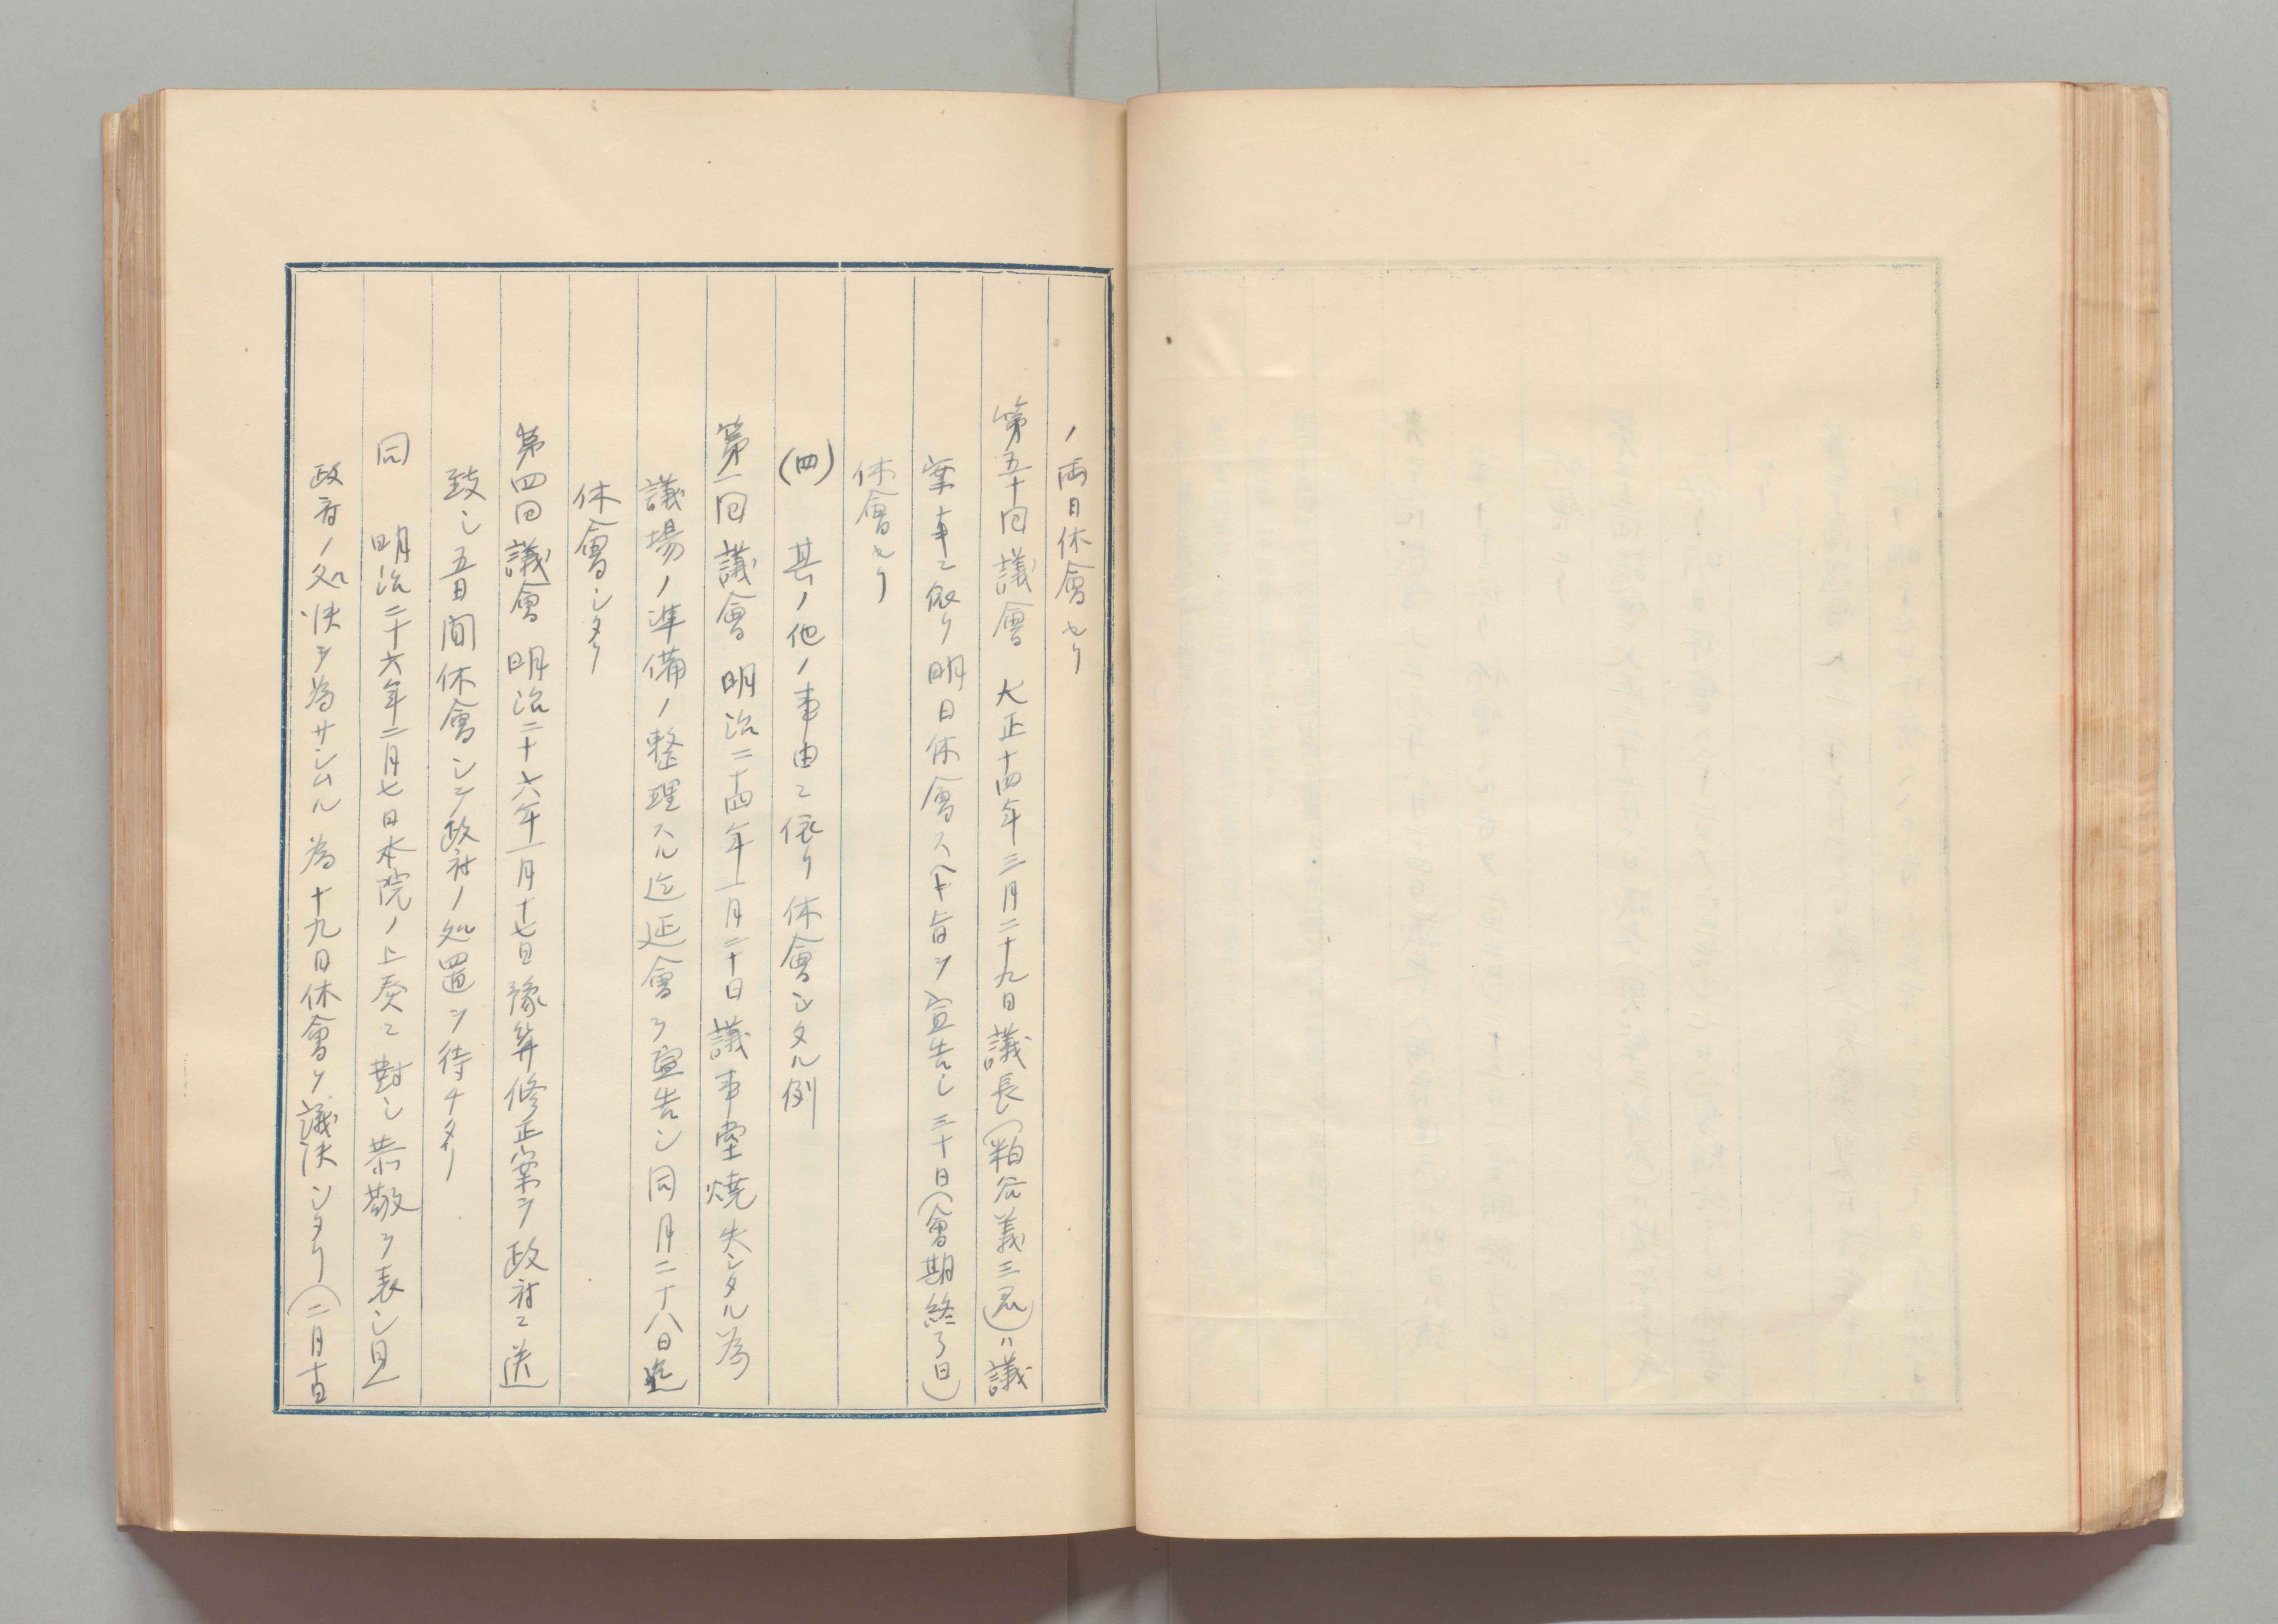 ノ両日休會セリ
第五十回議會 大正十四年三月二十九日議長(粕谷義三君)ハ議
案事ニ依リ明日休會スヘキ旨ヲ宣告シ三十日(會期終了日)
休會セリ
(四) 其ノ他ノ事由ニ依リ休會シタル例
第一回議會 明治二十四年一月二十日議事堂燒失シタル為
議場ノ準備ノ整理スル迄延會ヲ宣告シ同月二十八日迄
休會シタリ
第四回議會 明治二十六年一月十七日豫算修正案ヲ政府ニ送
致シ五日間休會シテ政府ノ処置ヲ待チタリ
同 明治二十六年二月七日本院ノ上奏ニ對シ恭敬ヲ表シ且
政府ノ処決ヲ為サシムル為十九日休會ヲ議決シタリ(二月